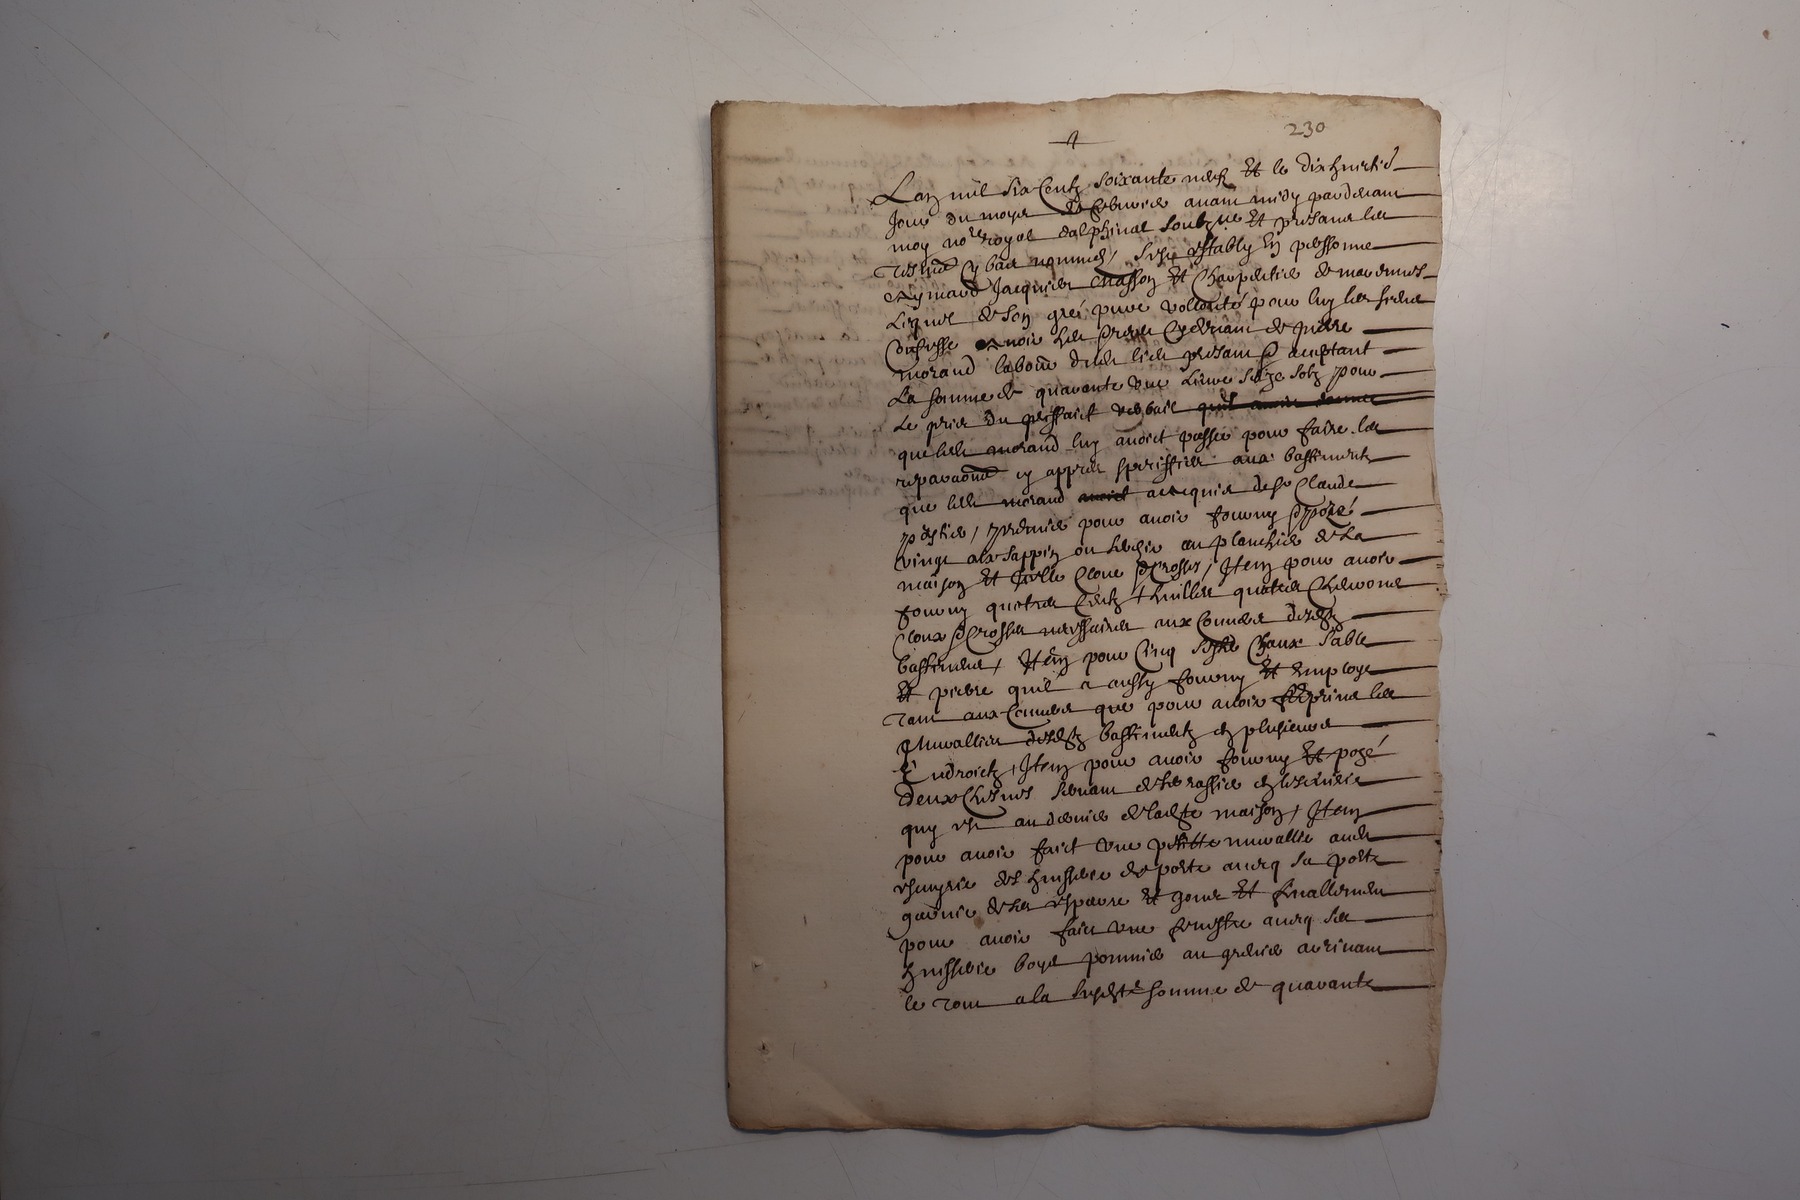 230
Lan mil six centz soixante neuf Et le dix huictie
Jour du moys de febvrier avant midy par devant
moy no.re royal dalphinal soubz.ne Et presans les
cy bas nommes, sest estably en personne
Aymard Jacquier masson Et Charpentier de
Lequel de son gré pure vollonté pour luy les siens
Confesse avoir heu de pierre
morand labour dudt lieu presant & aceptant
La somme de quarante une Livre seize solz pour
Le prix du prisfaict quil avoit donne
que ledt morand luy avoict passé pour faire les
reparaons cy appres speciffiees aux bastimentz
que ledt morand avoict acequis de sr Claude
premier pour avoir fourny & pozé
vingt aix sappin ou au planchier de La
maison Et Crosses, Item pour avoir
fourny quatre Centz thuilles quatre Chevrons
Cloux & Crosses necessaires aux Couvers desdtz
bastimens, Item pour Cinq Chaux sable
Et pierre quil a aussy fourny Et employe
Tant aux Couvers que pour avoir les
murallies desdtz bastimentz en plusieurs
Endroictz, Item pour avoir fourny Et pozé
deux servant de
quy est au dernier de ladte maison, Item
pour avoir faict une petitte muralle audt
de porte avecq sa porte
garnie de ses Et gons Et finallement
pour avoir faict une fenestre avecq ses
boys pommier au grenier arrivant
le tout a la susdte somme de quarante